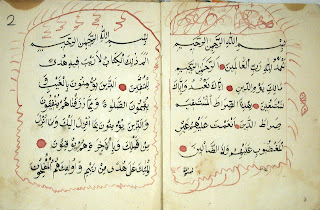 بسم الله الرحمن الرحيم
الحمد لله رب العالمين الرحمن الرحيم
مالك يوم الدين اياك نعبد واياك
نستعين اهدنا الصراط المستقيم
صراط الذين انعمت عليهم غير
المغضوب عليهم ولا الضالين
2
بسم الله الرحمن الرحيم
الم ذلك الكتاب لا ريب فيه هدى
للمتقين الذين يؤمنون بالغيب
ويقيمون الصلوة ومما رزقناهم ينفقون
والذين يؤمنون بما انزل اليك وما انزل
من قبلك وبالآخرة هم يوقنون
اولئك على هدى من ربهم واولئك هم المفلحون